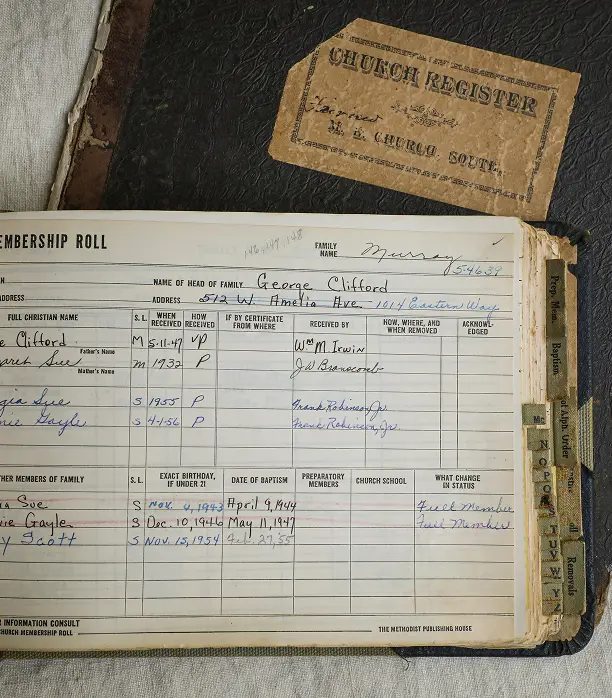 CHURCH REGISTER
M. E. CHURCH, SOUTH.
EMBERSHIP ROLL
146-147-148
FAMILY NAME Murray
54639
NAME OF HEAD OF FAMILY George Clifford
ADDRESS ADDRESS 512 W. Amelia Ave. 1014 Eastern Way
FULL CHRISTIAN NAME S. L. WHEN RECEIVED HOW RECEIVED IF BY CERTIFICATE FROM WHERE RECEIVED BY HOW, WHERE, AND WHEN REMOVED ACKNOWL- EDGED
e Clifford M 5-11-47 VP Wm M. Irwin
Father's Name
aret Sue m 1932 P J.W. Branscomb
Mother's Name
gia Sue S 1955 P Frank Robinson, Jr.
nie Gayle S 4-1-56 P Frank Robinson, Jr.
THER MEMBERS OF FAMILY S. L. EXACT BIRTHDAY, IF UNDER 21 DATE OF BAPTISM PREPARATORY MEMBERS CHURCH SCHOOL WHAT CHANGE IN STATUS
a Sue S Nov. 4, 1943 April 9, 1944 Full Member
ie Gayle S Dec. 10, 1946 May 11, 1947 Full Member
y Scott S Nov. 15, 1954 Feb. 27, 55
R INFORMATION CONSULT
CHURCH MEMBERSHIP ROLL THE METHODIST PUBLISHING HOUSE
Prep. Mem.
Baptism
of Alph. Order
Mc
N
O
P
Q
R
S
T
U
V
W
Y
Z
Removals